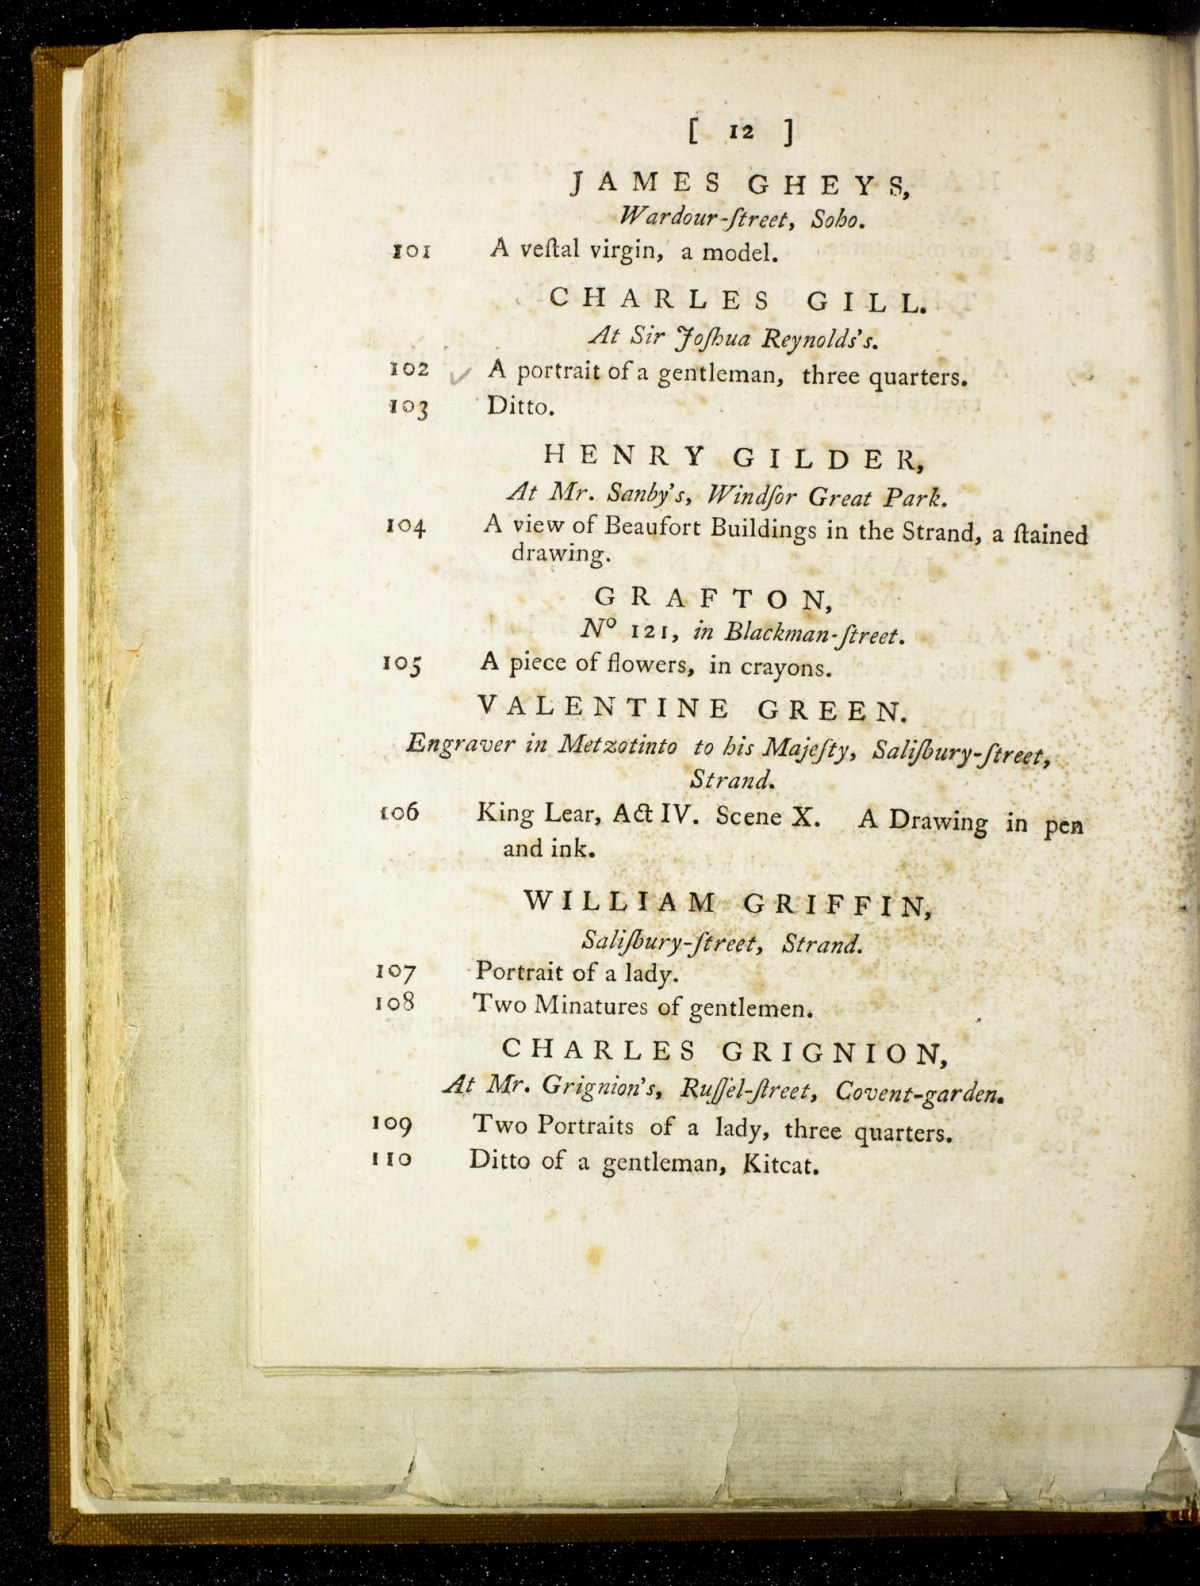 [ 12 ]
JAMES GHEYS,
Wardour-ſtreet, Soho.
101 A veſtal virgin, a model.
CHARLES GILL.
At Sir Joſhua Reynolds's.
102 A portrait of a gentleman, three quarters.
103 Ditto.
HENRY GILDER,
At Mr. Sanby's, Windſor Great Park.
104 A view of Beaufort Buildings in the Strand, a ſtained
drawing.
GRAFTON,
Nº 121, in Blackman-ſtreet.
105 A piece of flowers, in crayons.
VALENTINE GREEN.
Engraver in Metzotinto to his Majeſty, Saliſbury-ſtreet,
Strand.
106 King Lear, Act IV. Scene X. A Drawing in pen
and ink.
WILLIAM GRIFFIN,
Saliſbury-ſtreet, Strand.
107 Portrait of a lady.
108 Two Minatures of gentlemen.
CHARLES GRIGNION,
At Mr. Grignion's, Ruſſel-ſtreet, Covent-garden.
109 Two Portraits of a lady, three quarters.
110 Ditto of a gentleman, Kitcat.